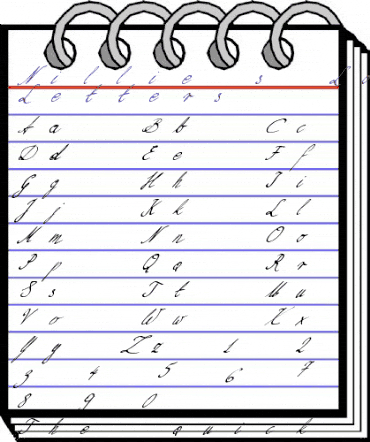 N i l l i e s L
L e t t e r s
A a B b C c
D d E e F f
G g H h I i
J j K k L l
M m N n O o
P p Q q R r
S s T t U u
V v W w X x
Y y Z z 1 2
3 4 5 6 7
8 9 0
T h e q u i c k